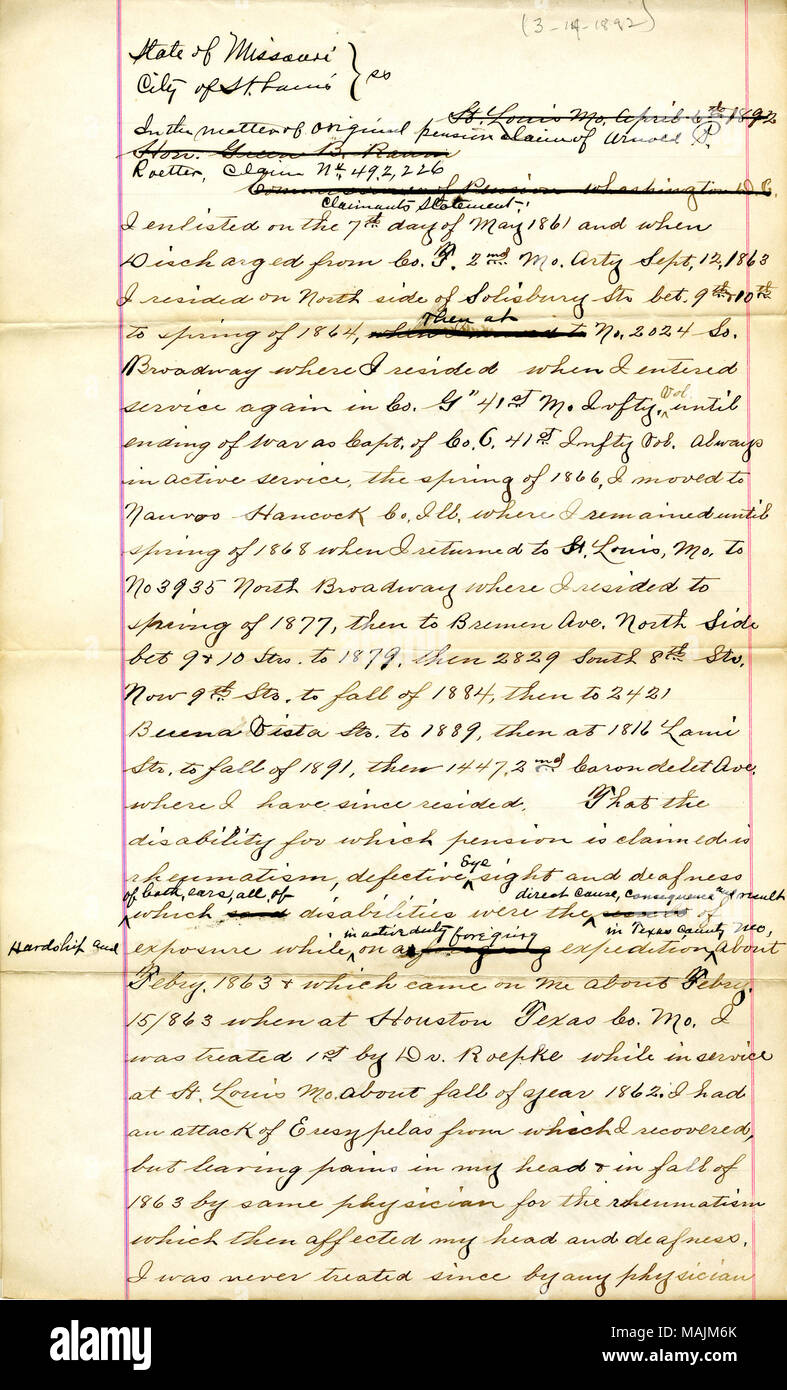 (3-14-1892)
State of Missouri
City of St. Louis } ss
St. Louis Mo. April 6th 1892
In the matter of original pension claim of Arnold P.
Hon. Green B. Raum
Roetter, Claim No 492,226
Commissioner of Pension Whashington D.C.
Claimants Statement:
I enlisted on the 7th day of May 1861 and when
Discharged from Co. F. 2nd Mo. Arty Sept, 12, 1863
I resided on North side of Solisbury Str. bet. 9th & 10th
then at
to spring of 1864, when I moved to No. 2024 So.
Broadway where I resided when I entered
service again in Co. G" 41st M. Infty. Vol. until
ending of war as Capt. of Co. C. 41st Infty Vol. Always
in active service, the spring of 1866, I moved to
Nauvoo Hancock Co. Ill. where I remained until
spring of 1868 when I returned to St. Louis, Mo. to
No 3935 North Broadway where I resided to
spring of 1877, then to Bremen Ave. North Side
bet 9 & 10 Strs. to 1879, then 2829 South 8th Str.
Now 9th Str. to fall of 1884, then to 2421
Buena Vista Str. to 1889, then at 1816 Lami
Str. to fall of 1891, then 1447, 2nd Carondelet Ave.
where I have since resided. That the
disability for which pension is claimed is
rheumatism, defective Eye sight and deafness
of both, ears, all, of direct cause, consequence and result
which said disabilities were the result of
in active duty foreging in Texas County Mo,
Hardship and exposure while on a expedition about
Febry. 1863 & which came on me about Febry.
15/863 when at Houston Texas Co. Mo. I
was treated 1st by Dr. Roepke while in service
at St. Louis Mo. about fall of year 1862. I had
an attack of Eresypelas from which I recovered,
but leaving pains in my head & in fall of
1863 by same physician for the rheumatism
which then affected my head and deafness.
I was never treated since by any physician
alamy
Image ID: MAJM6K
www.alamy.com